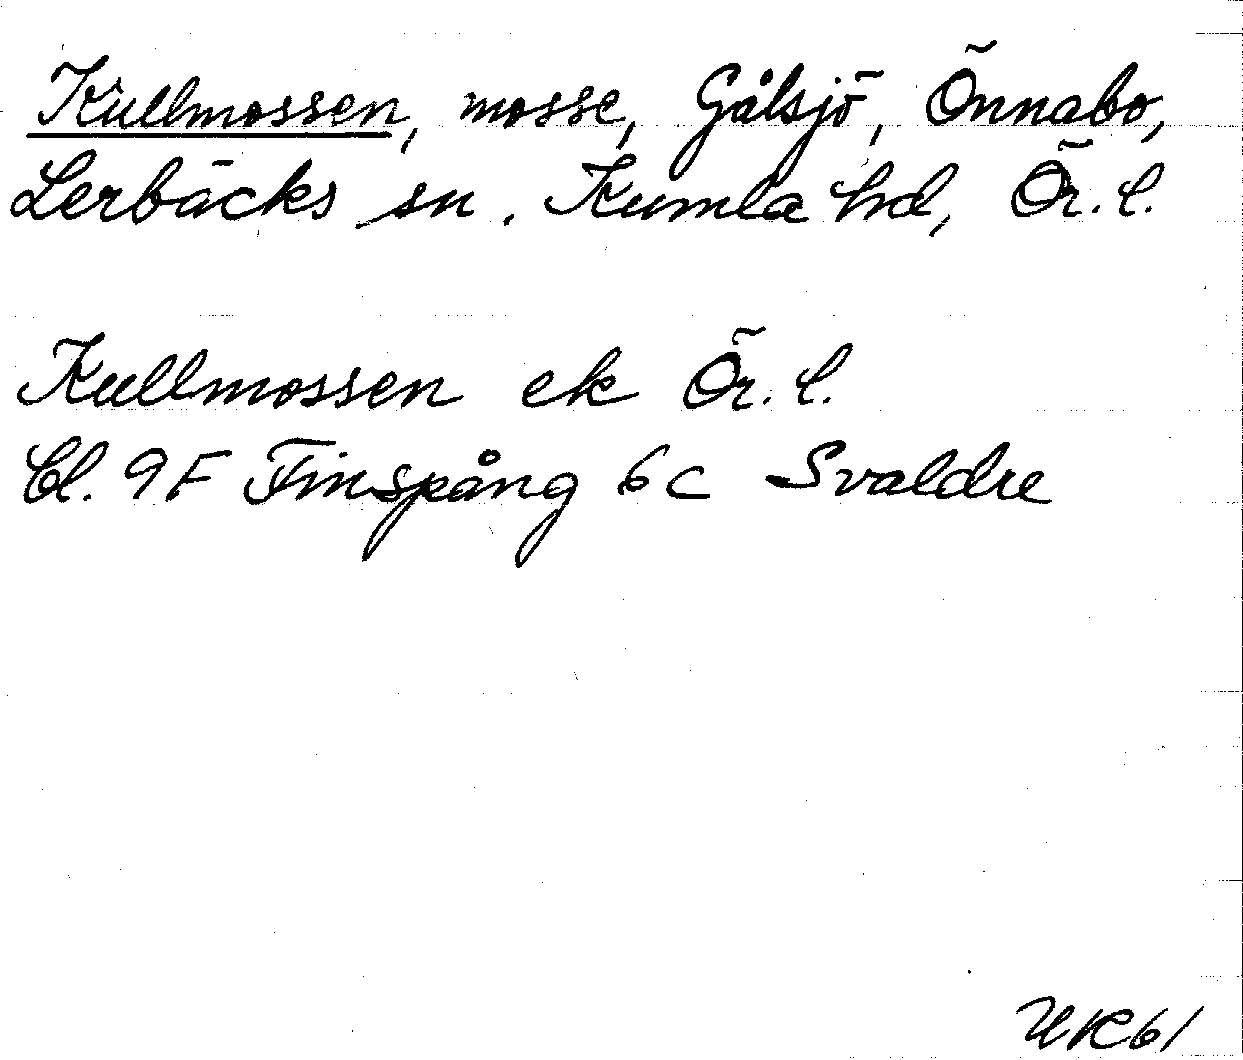 Kullmossen, mosse, Gålsjö, Önnabo,
Lerbäcks sn. Kumla hd, Ör. l.
Kullmossen ek Ör. l.
Bl. 9F Finspång 6c Svaldre
UK61